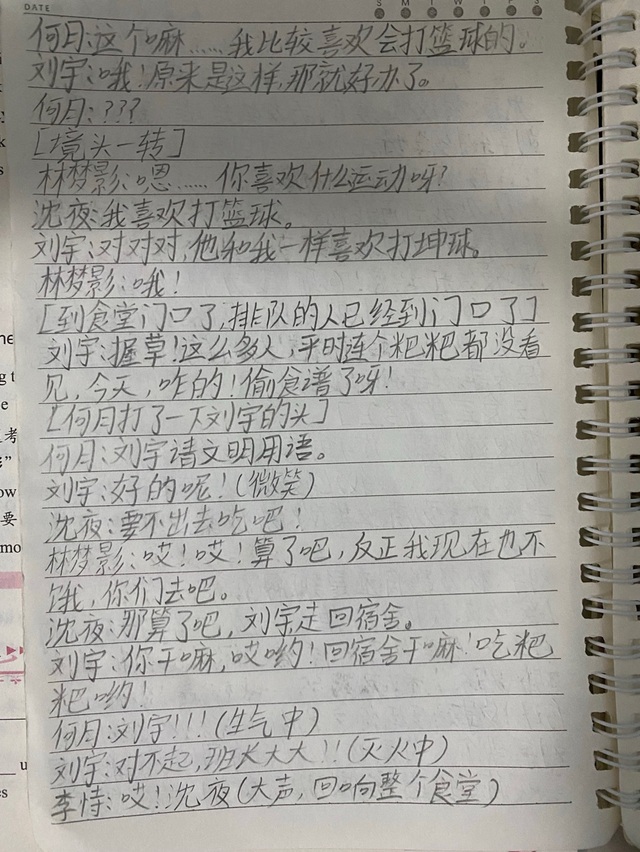 DATE
S M T W T F S
何月:这个嘛……我比较喜欢会打篮球的。
刘宇:哦!原来是这样,那就好办了。
何月:???
[境头一转]
林梦影:嗯……你喜欢什么运动呀?
沈夜:我喜欢打篮球。
刘宇:对对对,他和我一样喜欢打坤球。
林梦影:哦!
[到食堂门口了,排队的人已经到门口了]
刘宇:握草!这么多人,平时连个粑粑都没看
见,今天,咋的!偷食谱了呀!
[何月打了一下刘宇的头]
何月:刘宇请文明用语。
刘宇:好的呢!(微笑)
沈夜:要不出去吃吧!
林梦影:哎!哎!算了吧,反正我现在也不
饿,你们去吧。
沈夜:那算了吧,刘宇走回宿舍。
刘宇:你干嘛,哎哟!回宿舍干嘛!吃粑
粑哟!
何月:刘宇!!!(生气中)
刘宇:对不起,班长大大!!(灭火中)
李恃:哎!沈夜(大声,回响整个食堂)